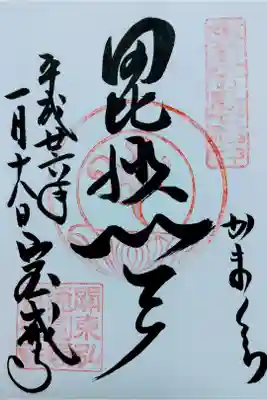 かまくら
毘沙門天
平成廿六年
一月十六日
宝戒寺
關東弘